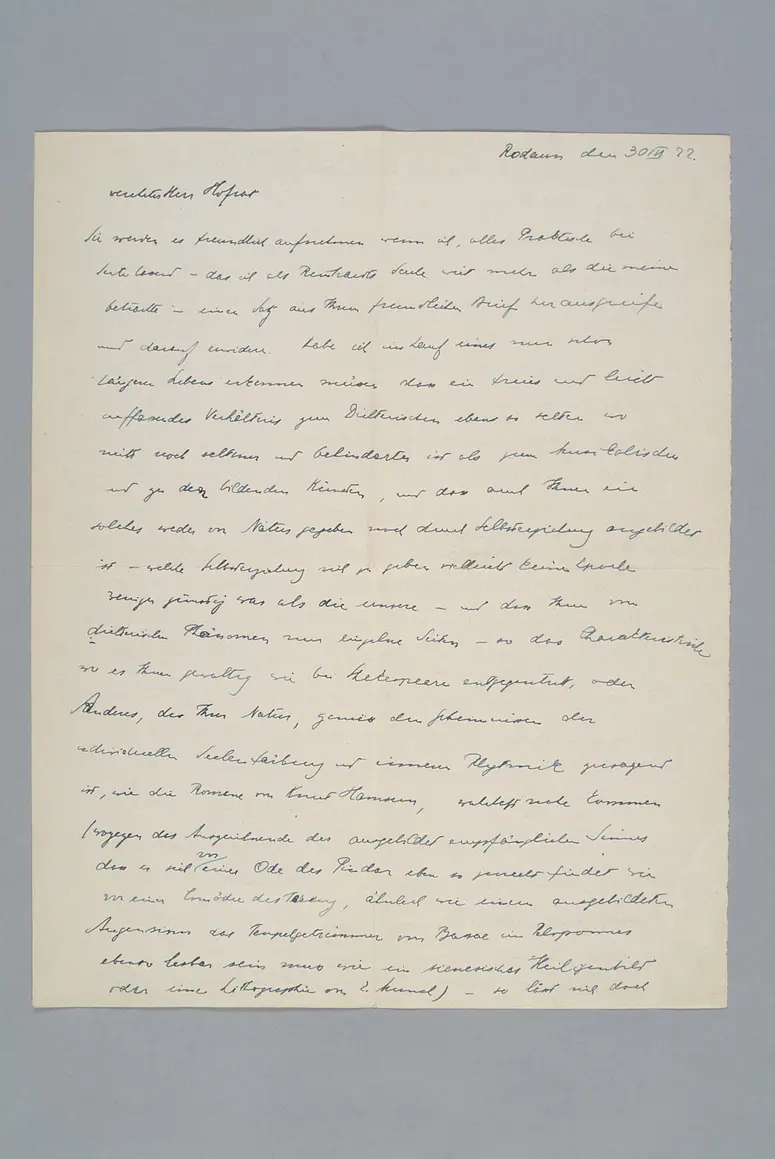 Rodaun den 30 VI 22.
verehrter Herr Hofrat
Sie werden es freundlich aufnehmen wenn ich, alles Praktische bei
Seite lassend – das ich als Reinhardts Sache viel mehr als die meine
betrachte – einen Satz aus Ihrem freundlichen Brief herausgreife
und darauf erwidere. Habe ich im Lauf eines nun schon
längeren Lebens erkennen müssen dass ein freies und leicht
auffassendes Verhältnis zum Dichterischen ebenso selten wo
nicht noch seltener und behinderter ist als zum Musikalischen
und zu den bildenden Künsten, und dass auch Ihnen ein
solches weder von Natur gegeben noch durch Selbsterziehung angebildet
ist – welche Selbsterziehung sich zu geben vielleicht keine Epoche
weniger günstig war als die unsere – und dass Ihnen vom
dichterischen Phänomen nur einzelne Seiten – so das Charakteristische
wo es Ihnen gewaltig wie bei Shakespeare entgegentritt, oder
Anderes, das Ihrer Natur, gemäss den Geheimnissen der
individuellen Seelenfärbung und inneren Rhythmik zusagend
ist, wie die Romane von Knut Hamsun, wahrhaft nahe kommen
(wogegen das Auszeichnende des ausgebildet empfänglichen Sinnes
dass er sich vor einer Ode des Pindar eben so zurecht findet wie
vor einer Komödie des, ähnlich wie einem ausgebildeten
Augensinn das Tempelgetrümmer von Bassae im Peloponnes
ebenso lesbar sein muss wie ein sienesisches Heiligenbild
oder eine Lithographie von E. Munch) – so lässt sich doch